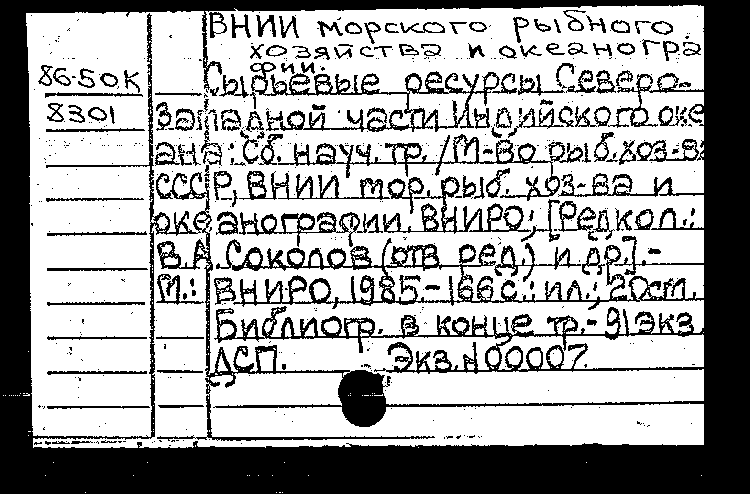 ВНИИ морского рыбного
хозяйства и океаногра
фии.
86-50К Сырьевые ресурсы Северо-
8301 Западной части Индийского оке
ана: Сб. науч. тр. / М-во рыб. хоз-ва
СССР, ВНИИ мор. рыб. хоз-ва и
океанографии. ВНИРО; [Редкол.:
В.А. Соколов (отв. ред.) и др.]. -
М.: ВНИРО, 1985. - 166 с.: ил.; 20см.
Библиогр. в конце тр. - 91 экз.
ДСП. Экз. N 00007